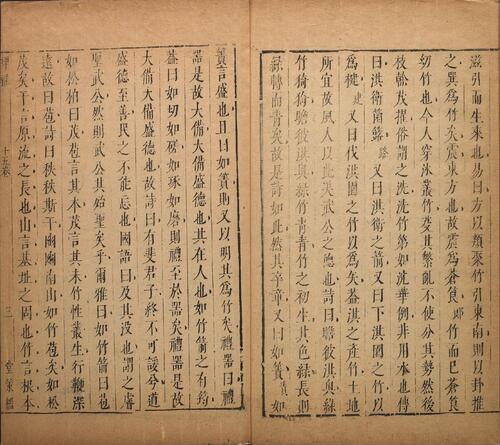 滋引而生来也易曰方以類聚竹引東南則以卦推
之巽為竹矣震東方也故震為蒼筤郎竹而巳蒼筤
幼竹也今人穿沐叢竹芟其繁亂不使分其勢然後
枝榦茂擢俗謂之洗洗竹第如洗華例非用水也傳
曰淇衛箘簬路又曰淇衛之箭又曰下淇園之竹以
為楗建又曰伐淇園之竹以為矢葢淇之產竹土地
所宜故風人以此美武公之德也詩曰瞻彼淇奥緑
竹猗猗瞻彼淇奥緑竹青青竹之初生其色緑長則
緑轉而青矣故是詩如此然其卒章又曰如簀責如
簀言盛也且曰如簀則又以明其為竹矣禮器曰禮
器是故大備大備盛德也其在人也如竹箭之有筠
葢曰如切如磋如琢如磨則禮至於器矣禮器是故
大備大備盛德也故詩曰有斐君子終不可諼兮道
盛德至善民之不能忘也國語曰及其没也謂之睿
聖武公然則武公其始聖矣乎爾雅曰如竹箭曰苞
如松柏曰茂苞言其本茂言其末竹性叢生行鞭深
遠故曰苞詩曰秩秩斯干幽幽南山如竹苞矣如松
茂矣干言原流之長也山言基址之固也竹言根本
埤雅 十五卷 三 堂策檻